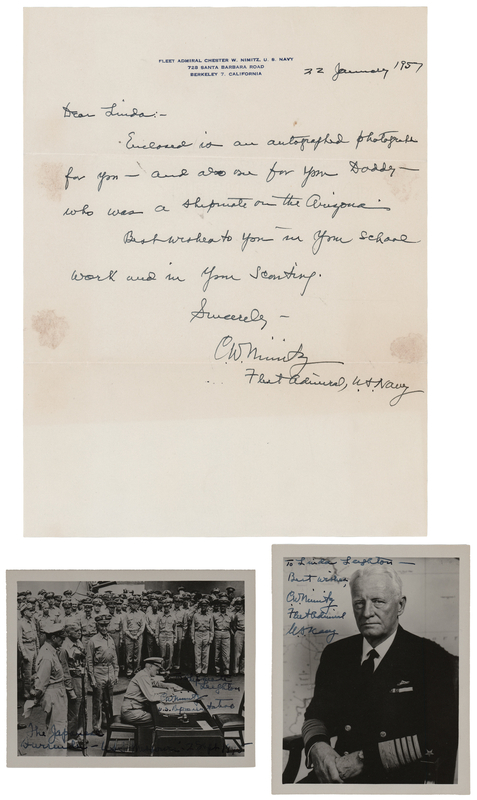 FLEET ADMIRAL CHESTER W. NIMITZ, U. S. NAVY
728 SANTA BARBARA ROAD
BERKELEY 7, CALIFORNIA
22 January 1957
Dear Linda:-
Enclosed is an autographed photograph
for you - and also one for your Daddy -
who was a shipmate on the Arizona.
Best wishes to you in your school
work and in your Scouting.
Sincerely -
C.W. Nimitz
Fleet Admiral, U.S. Navy
To Linda Leighton -
Best wishes
C.W. Nimitz
Fleet Admiral
U.S. Navy
Leighton
The Japanese
Surrender -